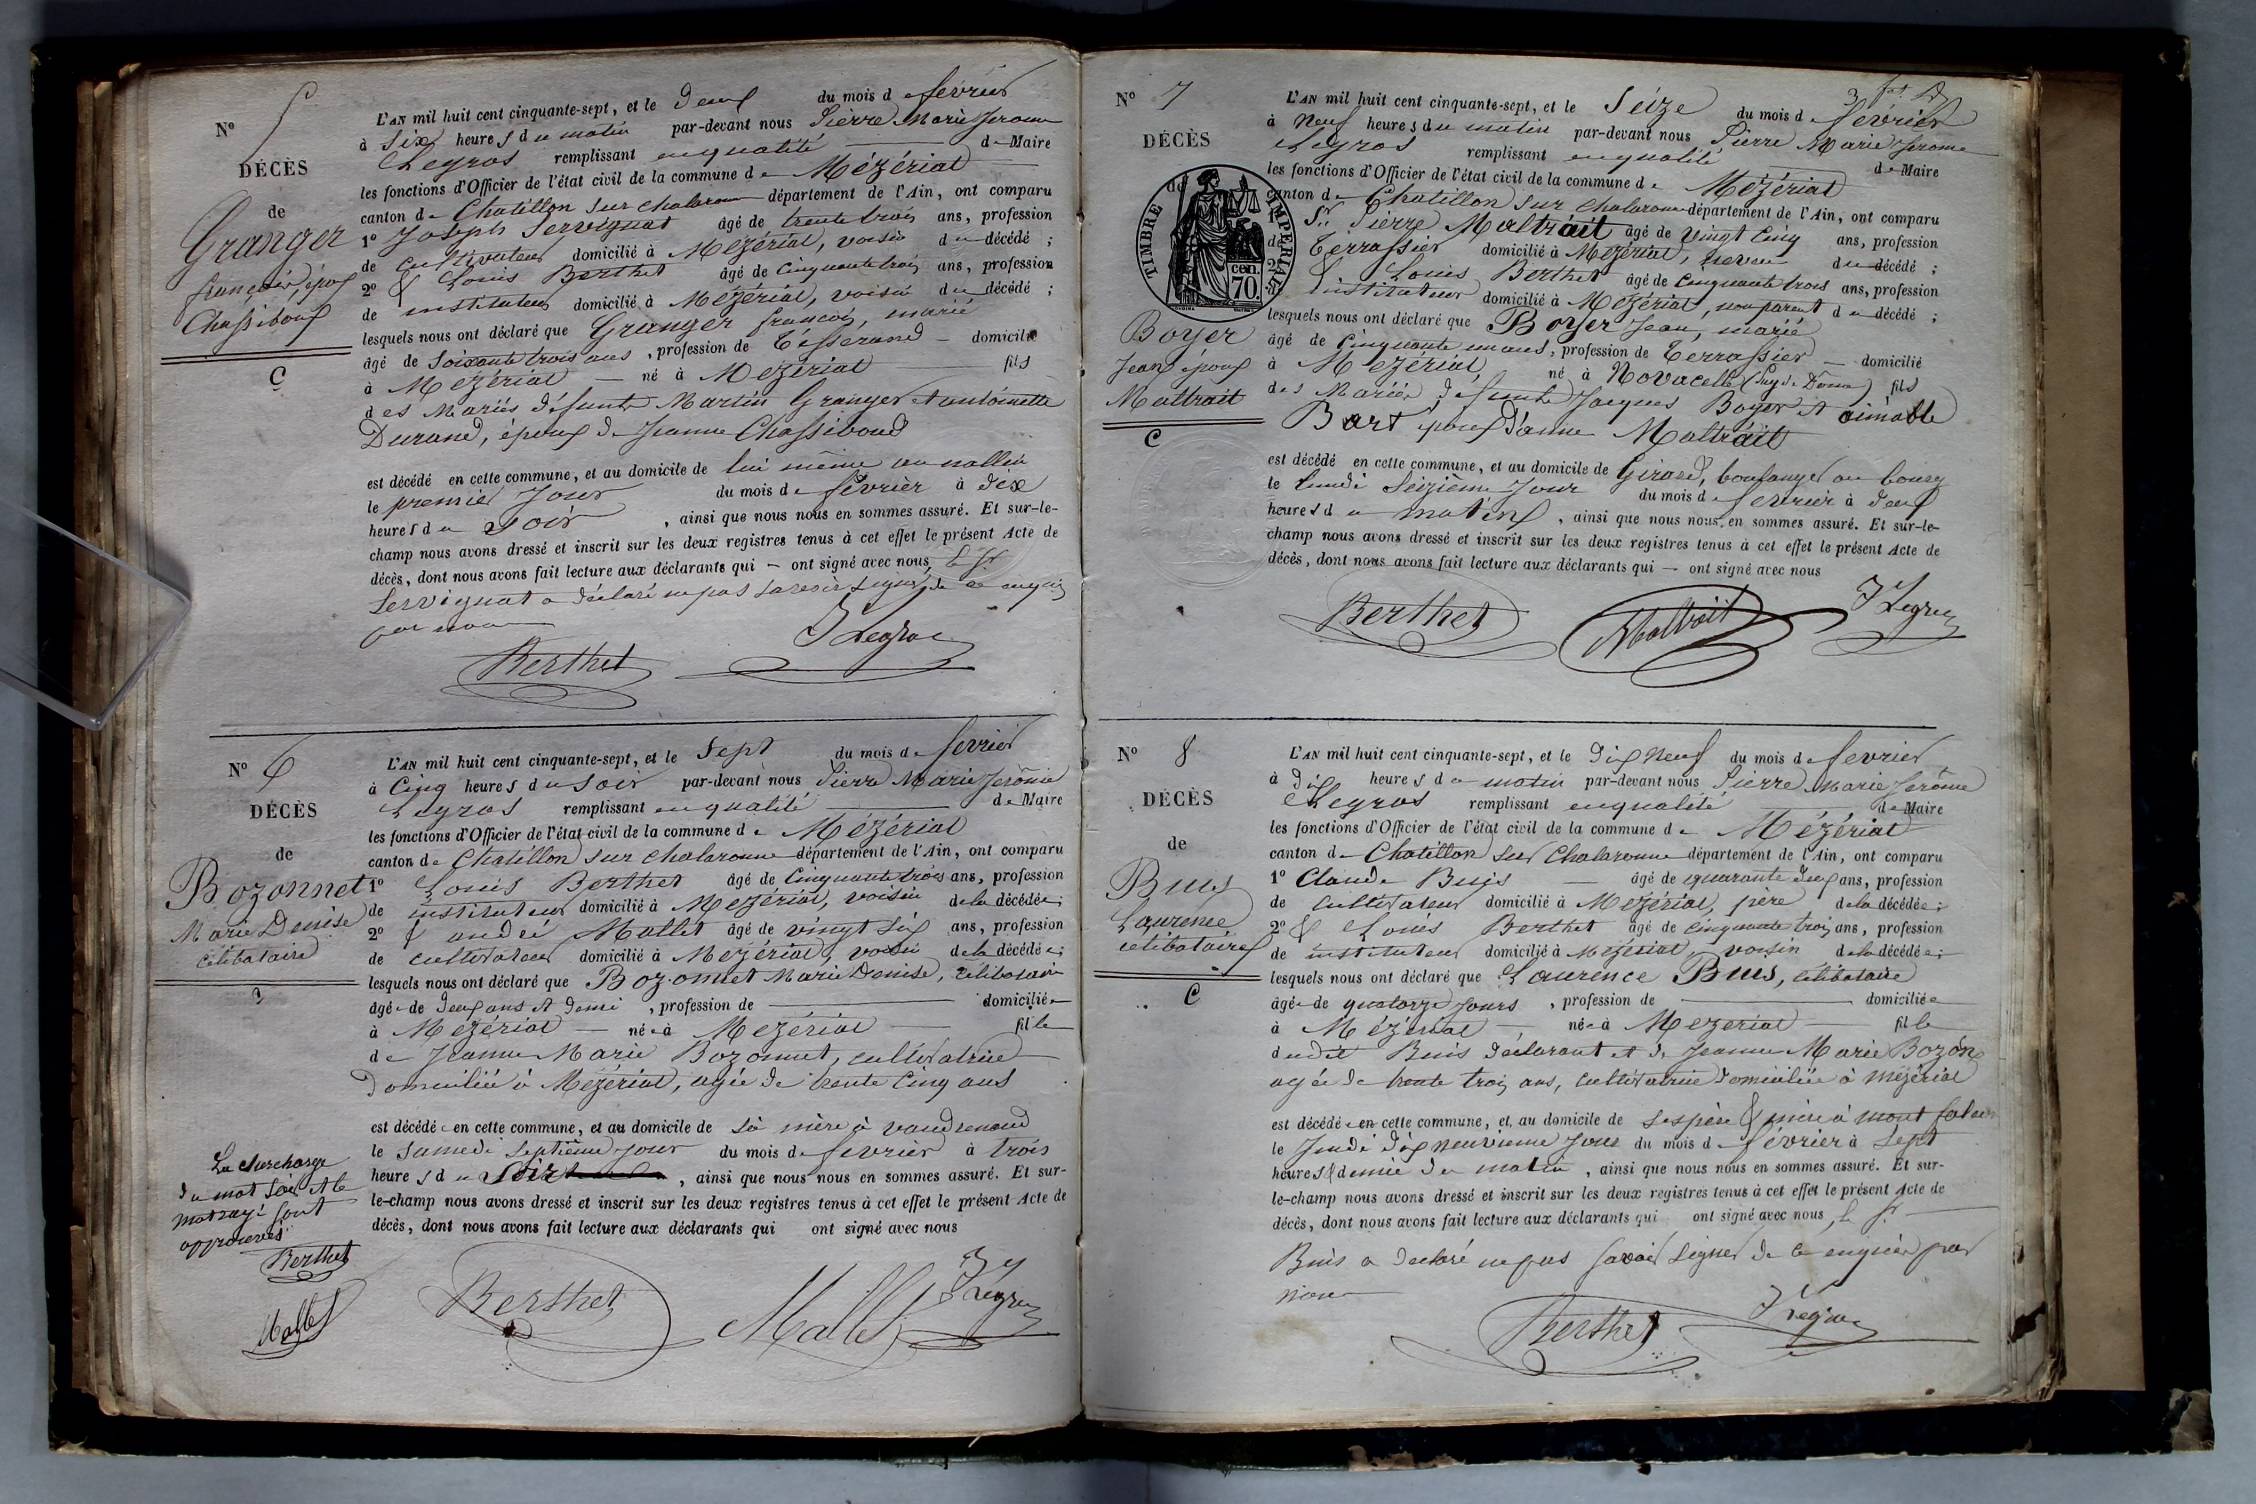 N° 5
DÉCÈS
de
Granger
françois époux
Chassiboux
C
L'AN mil huit cent cinquante-sept, et le Deux du mois de février
à Six heures du matin par-devant nous Pierre Marie Jérome
Legros remplissant en qualité de Maire
les fonctions d'Officier de l'état civil de la commune de Mézériat
canton de Chatillon sur chalaronne département de l'Ain, ont comparu
1° Joseph Servignat âgé de trente trois ans, profession
de cultivateur domicilié à Mézériat, voisin du décédé ;
2° & Louis Berthet âgé de cinquante trois ans, profession
de instituteur domicilié à Mézériat, voisin du décédé ;
lesquels nous ont déclaré que Granger françois, marié
âgé de soixante trois ans, profession de Tisserand domicilié
à Mézériat né à Mézériat fils
des Mariés défunts Martin Granger et antoinette
Durand, époux de Jeanne Chassiboud
est décédé en cette commune, et au domicile de lui même au
le premier Jour du mois de février à dix
heures du soir, ainsi que nous nous en sommes assuré. Et sur-le-
champ nous avons dressé et inscrit sur les deux registres tenus à cet effet le présent Acte de
décès, dont nous avons fait lecture aux déclarants qui ont signé avec nous, le Sr
Servignat a déclaré ne pas savoir signer de ce enquis
par nous
Berthet J Legros
N° 6
DÉCÈS
de
Bozonnet
Marie Denise
célibataire
L'AN mil huit cent cinquante-sept, et le Sept du mois de février
à Cinq heures du soir par-devant nous Pierre Marie Jérôme
Legros remplissant en qualité de Maire
les fonctions d'Officier de l'état civil de la commune de Mézériat
canton de Chatillon sur chalaronne département de l'Ain, ont comparu
1° Louis Berthet âgé de Cinquante trois ans, profession
de instituteur domicilié à Mézériat, voisin de la décédée ;
2° & andré Mallet âgé de vingt six ans, profession
de cultivateur domicilié à Mézériat, voisin de la décédée ;
lesquels nous ont déclaré que Bozonnet Marie Denise, célibataire
âgée de deux ans et demi, profession de domiciliée
à Mézériat née à Mézériat fille
de Jeanne Marie Bozonnet, cultivatrice
domiciliée à Mézériat, agée de trente Cinq ans
est décédée en cette commune, et au domicile de sa mère à vaudrenand
le samedi septième jour du mois de février à trois
heures du soir, ainsi que nous nous en sommes assuré. Et sur-
le-champ nous avons dressé et inscrit sur les deux registres tenus à cet effet le présent Acte de
décès, dont nous avons fait lecture aux déclarants qui ont signé avec nous
La surcharge
du mot soir et le
mot rayé sont
approuvés
Berthet
Mallet
Berthet Mallet J Legros
N° 7
DÉCÈS
de
TIMBRE IMPERIAL
70 cen.
Boyer
Jean époux
Maltrait
C
L'AN mil huit cent cinquante-sept, et le Seize du mois de février
à Neuf heures du matin par-devant nous Pierre Marie Jérome
Legros remplissant en qualité de Maire
les fonctions d'Officier de l'état civil de la commune de Mézériat
canton de Chatillon sur chalaronne département de l'Ain, ont comparu
1° Sr Pierre Maltrait âgé de vingt Cinq ans, profession
de Terrassier domicilié à Mézériat, neveu du décédé ;
2° & Louis Berthet âgé de cinquante trois ans, profession
de instituteur domicilié à Mézériat, non parent du décédé ;
lesquels nous ont déclaré que Boyer Jean, marié
âgé de Cinquante un ans, profession de Terrassier domicilié
à Mézériat, né à Novacelle (Puy de Dôme) fils
des Mariés défunts Jacques Boyer et aimable
Bart époux d'anne Maltrait
est décédé en cette commune, et au domicile de Girard, boulanger au bourg
le lundi Seizième Jour du mois de février à deux
heures du matin, ainsi que nous nous en sommes assuré. Et sur-le-
champ nous avons dressé et inscrit sur les deux registres tenus à cet effet le présent Acte de
décès, dont nous avons fait lecture aux déclarants qui ont signé avec nous
Berthet Maltrait J Legros
N° 8
DÉCÈS
de
Buis
Laurence
célibataire
C
L'AN mil huit cent cinquante-sept, et le Dix Neuf du mois de février
à dix heures du matin par-devant nous Pierre Marie Jérôme
Legros remplissant en qualité de Maire
les fonctions d'Officier de l'état civil de la commune de Mézériat
canton de Chatillon sur Chalaronne département de l'Ain, ont comparu
1° Claude Buis âgé de quarante deux ans, profession
de cultivateur domicilié à Mézériat, père de la décédée ;
2° & Louis Berthet âgé de cinquante trois ans, profession
de instituteur domicilié à Mézériat, voisin de la décédée ;
lesquels nous ont déclaré que Laurence Buis, célibataire
âgée de quatorze jours, profession de domiciliée
à Mézériat née à Mézériat fille
dudit Buis déclarant et de Jeanne Marie Bozon
agée de trente trois ans, cultivatrice domiciliée à Mézériat
est décédée en cette commune, et au domicile de ses père & mère à mont
le Jeudi dix neuvieme Jour du mois de février à Sept
heures & demie du matin, ainsi que nous nous en sommes assuré. Et sur-
le-champ nous avons dressé et inscrit sur les deux registres tenus à cet effet le présent Acte de
décès, dont nous avons fait lecture aux déclarants qui ont signé avec nous, le Sr
Buis a déclaré ne pas savoir signer de ce enquis par
nous
Berthet J Legros